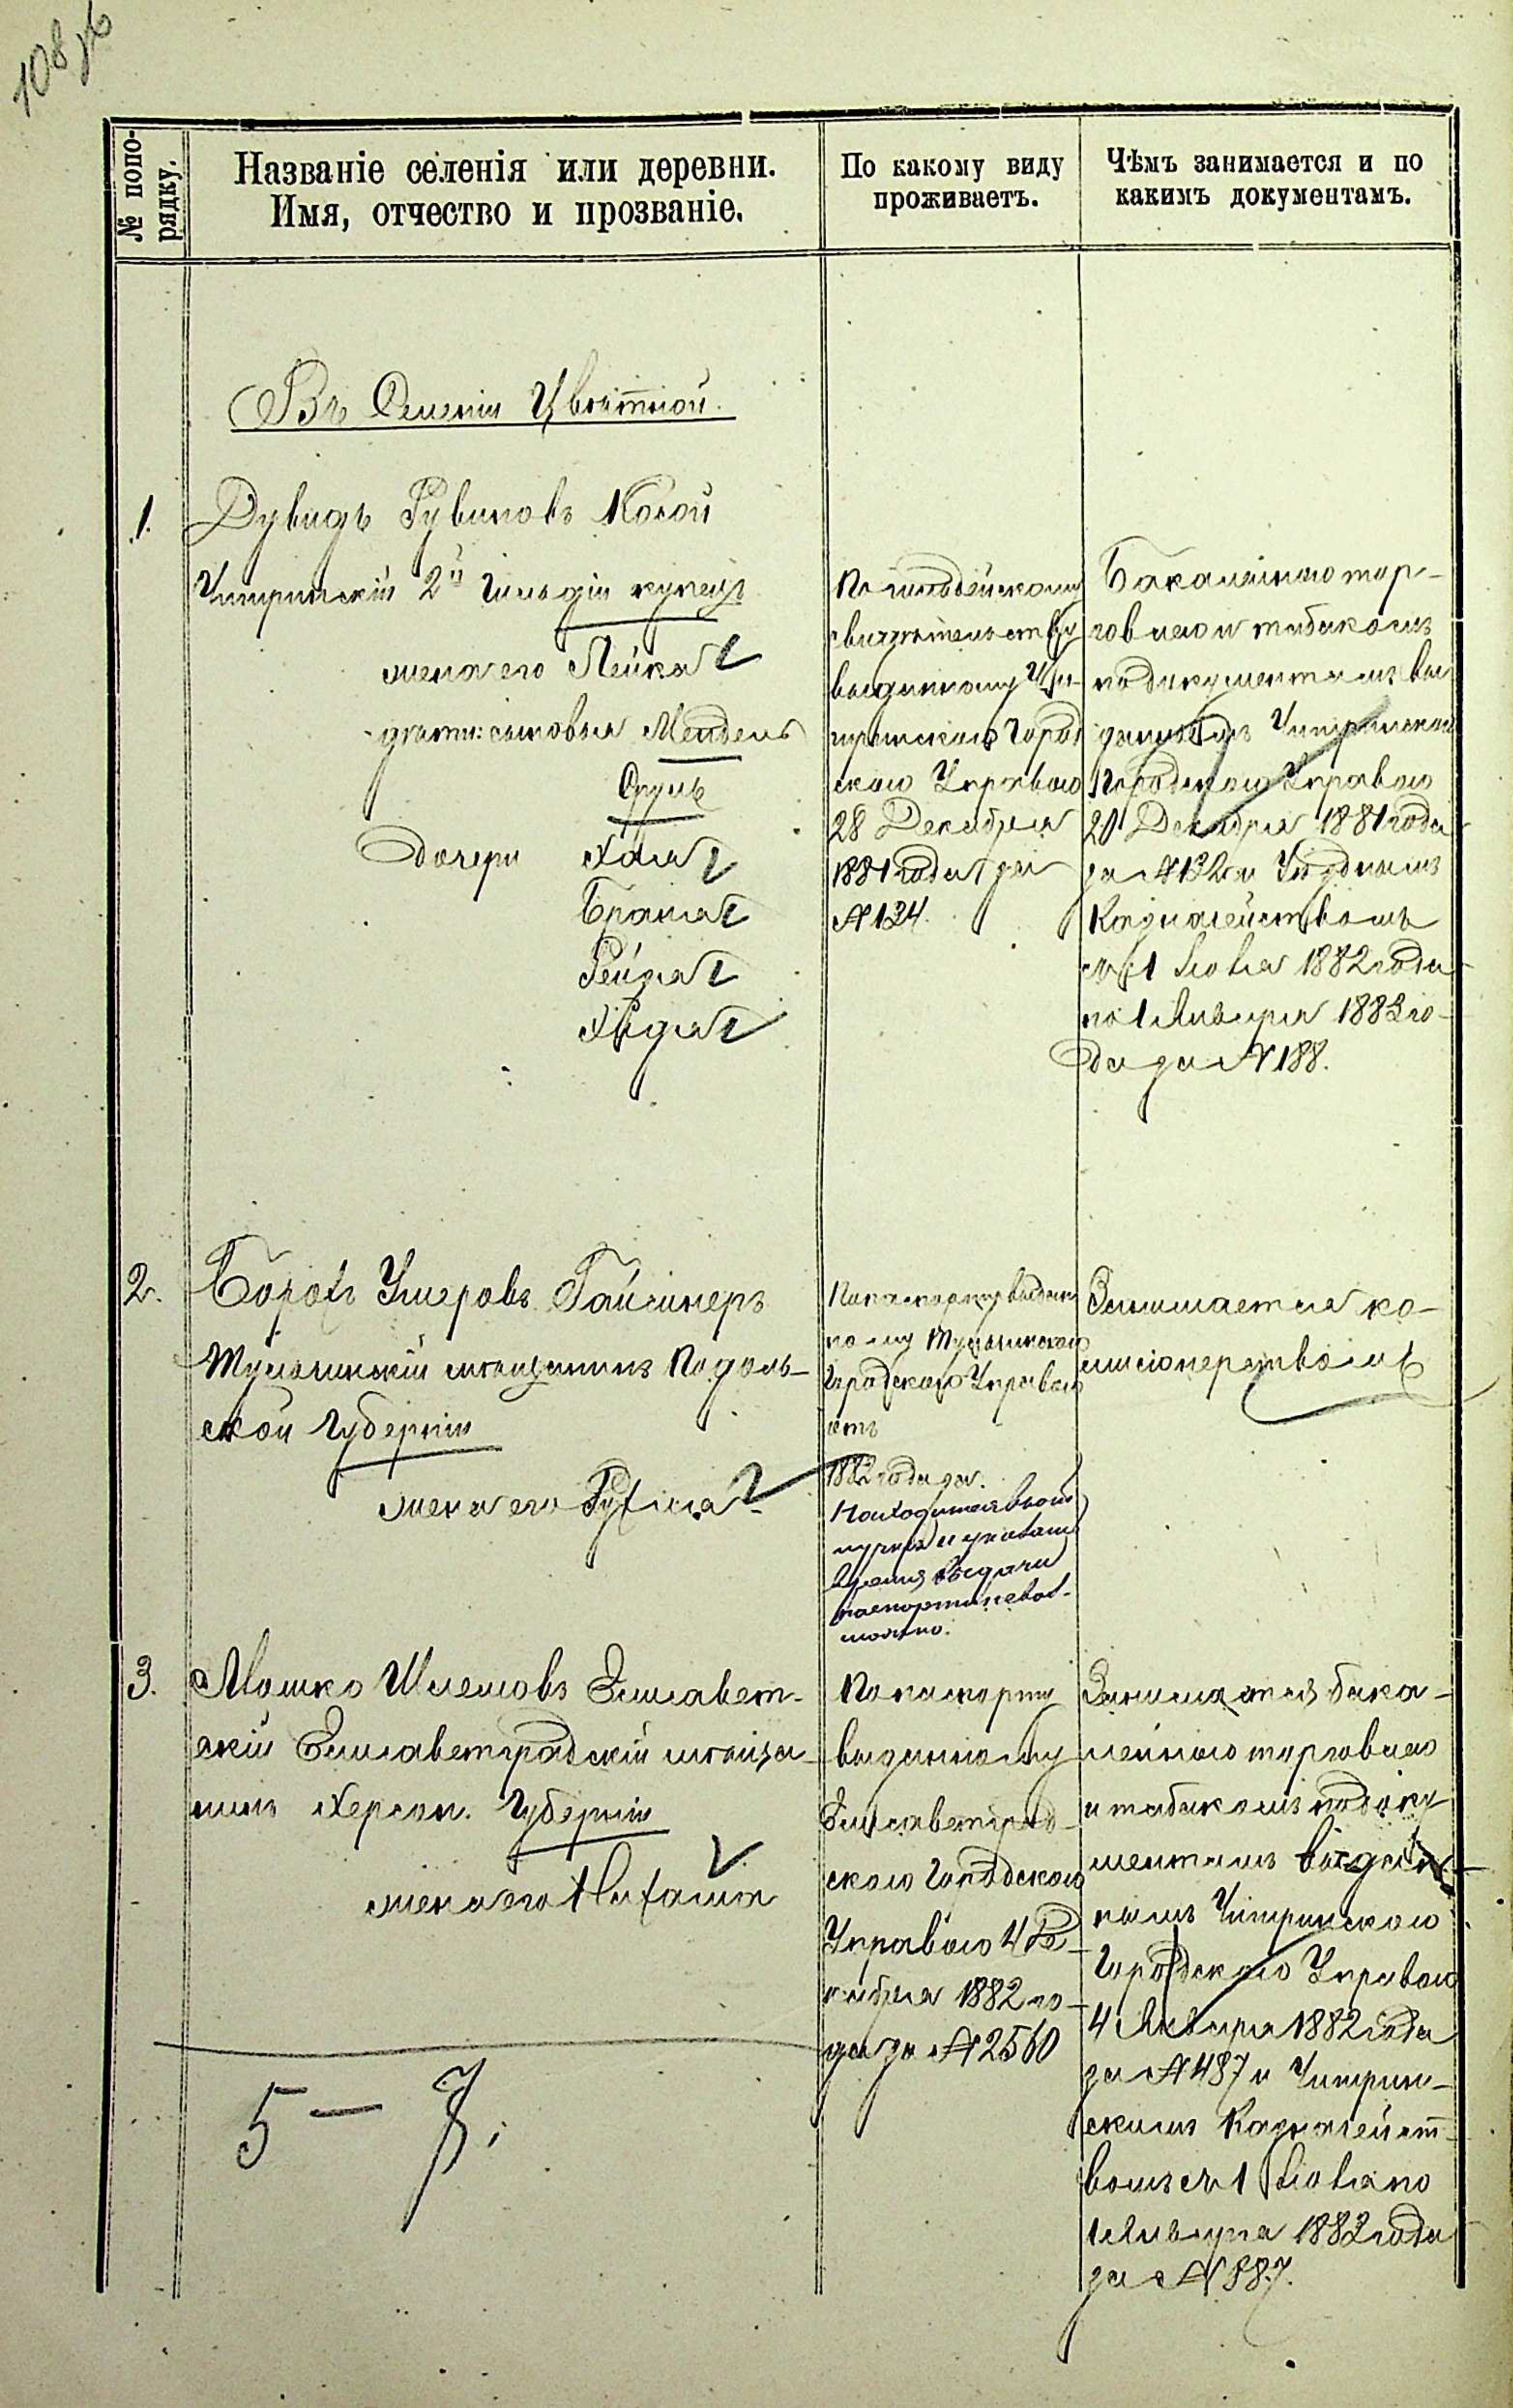 108 об
№ попо-
рядку.
Названіе селенія или деревни.
Имя, отчество и прозваніе.
По какому виду
проживаетъ.
Чѣмъ занимается и по
какимъ документамъ.
Въ Селеніи Цвѣтной.
1. Дувидъ Рувиновъ Косой
Чигринскій 2й Гильдіи купецъ
жена его Лейка
дѣти: сыновья Мендель
Сруль
Дочери Хая
Брана
Рейза
По гильдейскому
свидѣтельству
выданному Чи-
гринскою Город
скою Управою
28 Декабря
1881 года за
№ 134.
Бакалейною тор-
говлею и табакомъ
по документамъ вы
даннымъ Чигринской
Городскою Управою
20 Декабря 1881 года
за № 132 и Уѣзднымъ
Казначействомъ
съ 1 Іюля 1882 года
по 1 Января 1883 го-
да за № 188.
2. Борохъ Умеровъ Гайсинеръ
Тульчинскій мѣщанинъ Подоль-
ской Губерніи
жена его Рухля
По паспорту выдан
ному Тульчинскою
Городскою Управою
1882 года за
Находится въ от
время выдачи
паспорта невоз-
можно.
Занимается ко-
мисіонерствомъ
3. Мошко Шлемовъ Элисавет-
скій Элисаветградскій мѣща-
нинъ Херсон. Губерніи
жена его
По паспорту
выданному
Элисаветград-
скою Городскою
Управою 4 Де-
кабря 1882 го-
да за № 2560
Занимается бака-
лейною торговлею
и табакомъ по доку
ментамъ выдан-
нымъ Чигринскою
Городскою Управою
4 Января 1882 года
за № 487 и Чигрин-
скимъ Казначейст-
вомъ съ 1 Іюля по
1 Января 1883 года
за № 887.
5 — 7.